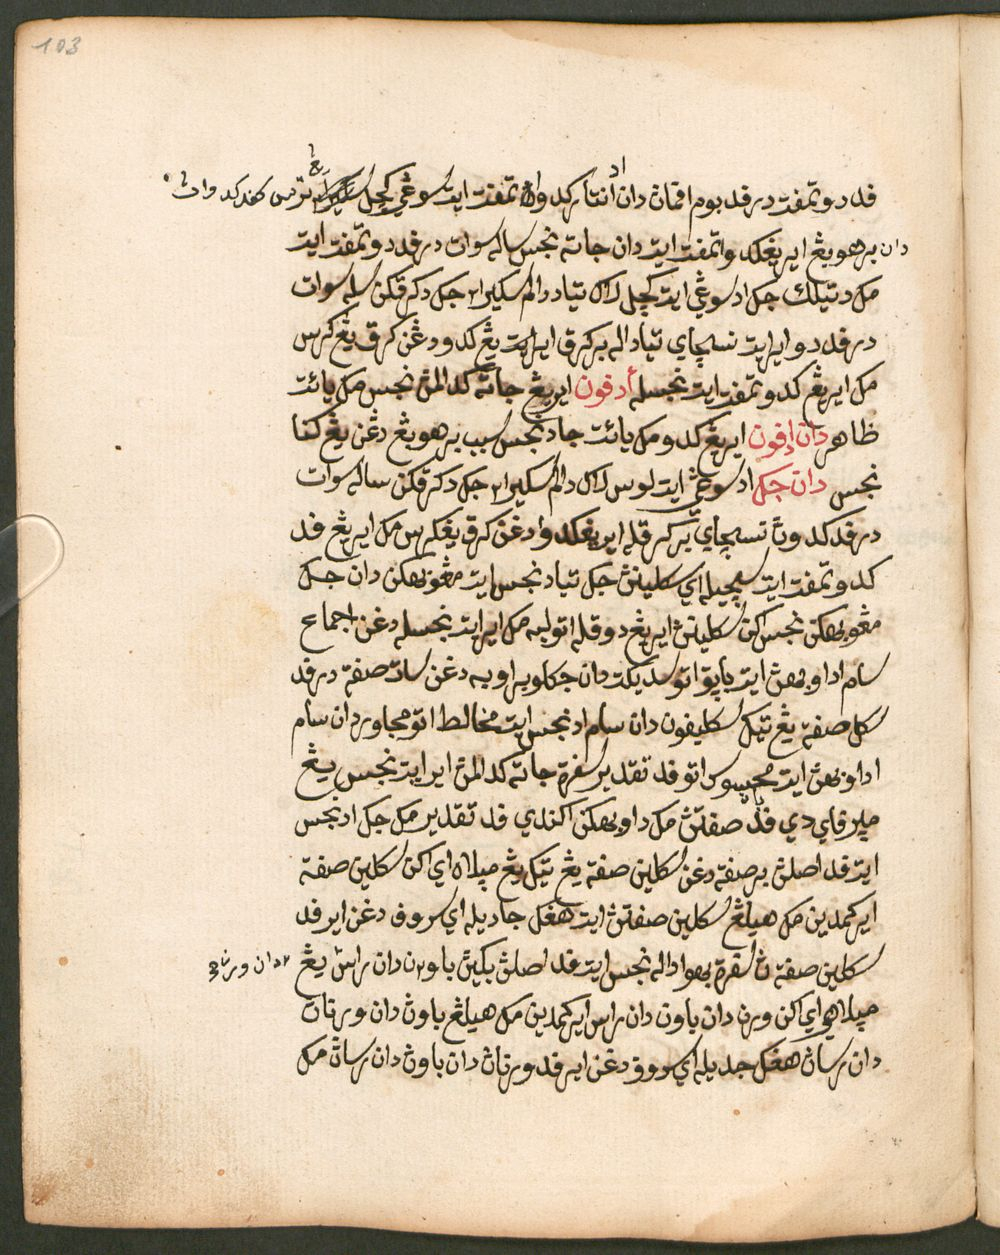 103
فد دو تمفت در فد بوم اڤمان دان انتار كدوا تمفت ايت سوڠي كچل
دان برهوبڠ اير يڠ كدوا تمفت ايت دان جاته نجس ساله سوات در فد دو تمفت ايت
مك دتيلك جك اد سوڠي ايت كچل لاك تياد دالم سكيرا٢ جك دكرقكن سله سوات
در فد دو اير ايت نسچاي تياداله بركرق اير ايت يڠ كدو دڠن كرق يڠ كرس
مك اير يڠ كدو تمفت ايت نجسله ادفون اير يڠ جاته كدالمڽ نجس مك يائت
ظاهر دان ادفون اير يڠ كدو مك يائت جاد نجس سبب برهوبڠ دڠن يڠ كنا
نجس دان جك اد سوڠي ايت لوس لاك دالم سكيرا٢ جك دكرقكن ساله سوات
در فد كدوڽ نسچاي بركرقله اير يڠ كدوا دڠن كرق يڠ كرس مك اير يڠ فد
كدو تمفت ايت سچيله اي سكلينڽ جك تياد نجس ايت مڠوبهكن دان جك
مڠوبهكن نجس اكن سكلينڽ اير يڠ دو قله اتو لبه مك اير ايت نجسله دڠن اجماع
سام اد اوبهن ايت باڽق اتو سديكت دان جكلو براوبه دڠن سات صفة در فد
سكل صفة يڠ تيك سكليفون دان سام اد نجس ايت مخالط اتو مجاور دان سام
اد اوبهن ايت محسوس اتو فد تقدير سفرة جاته كدالمڽ اير ايت نجس يڠ
مڽرفاي دي فد صفتڽ مك داوبهكن اكندي فد تقدير مك جك اد نجس
ايت فد اصلڽ برصفة دڠن سكلين صفة يڠ تيك يڠ مڽلاه اي اكن سكلين صفة
اير كمدين مك هيلڠ سكلين صفتڽ ايت هڠك جاديله اي سروف دڠن اير فد
سكلين صفة ڽ سفرة بهوا داله نجس ايت فد اصلڽ بڬين باوڽ دان راس يڠ
٢ دان ورنڽ
مڽلاهي اي اكن ورن دان باون دان راس اير كمدين مك هيلڠ باوڽ دان ورنان
دان رساڽ هڠك جديله اي سروف دڠن اير فد ورناڽ دان باوڽ دان رساڽ مك